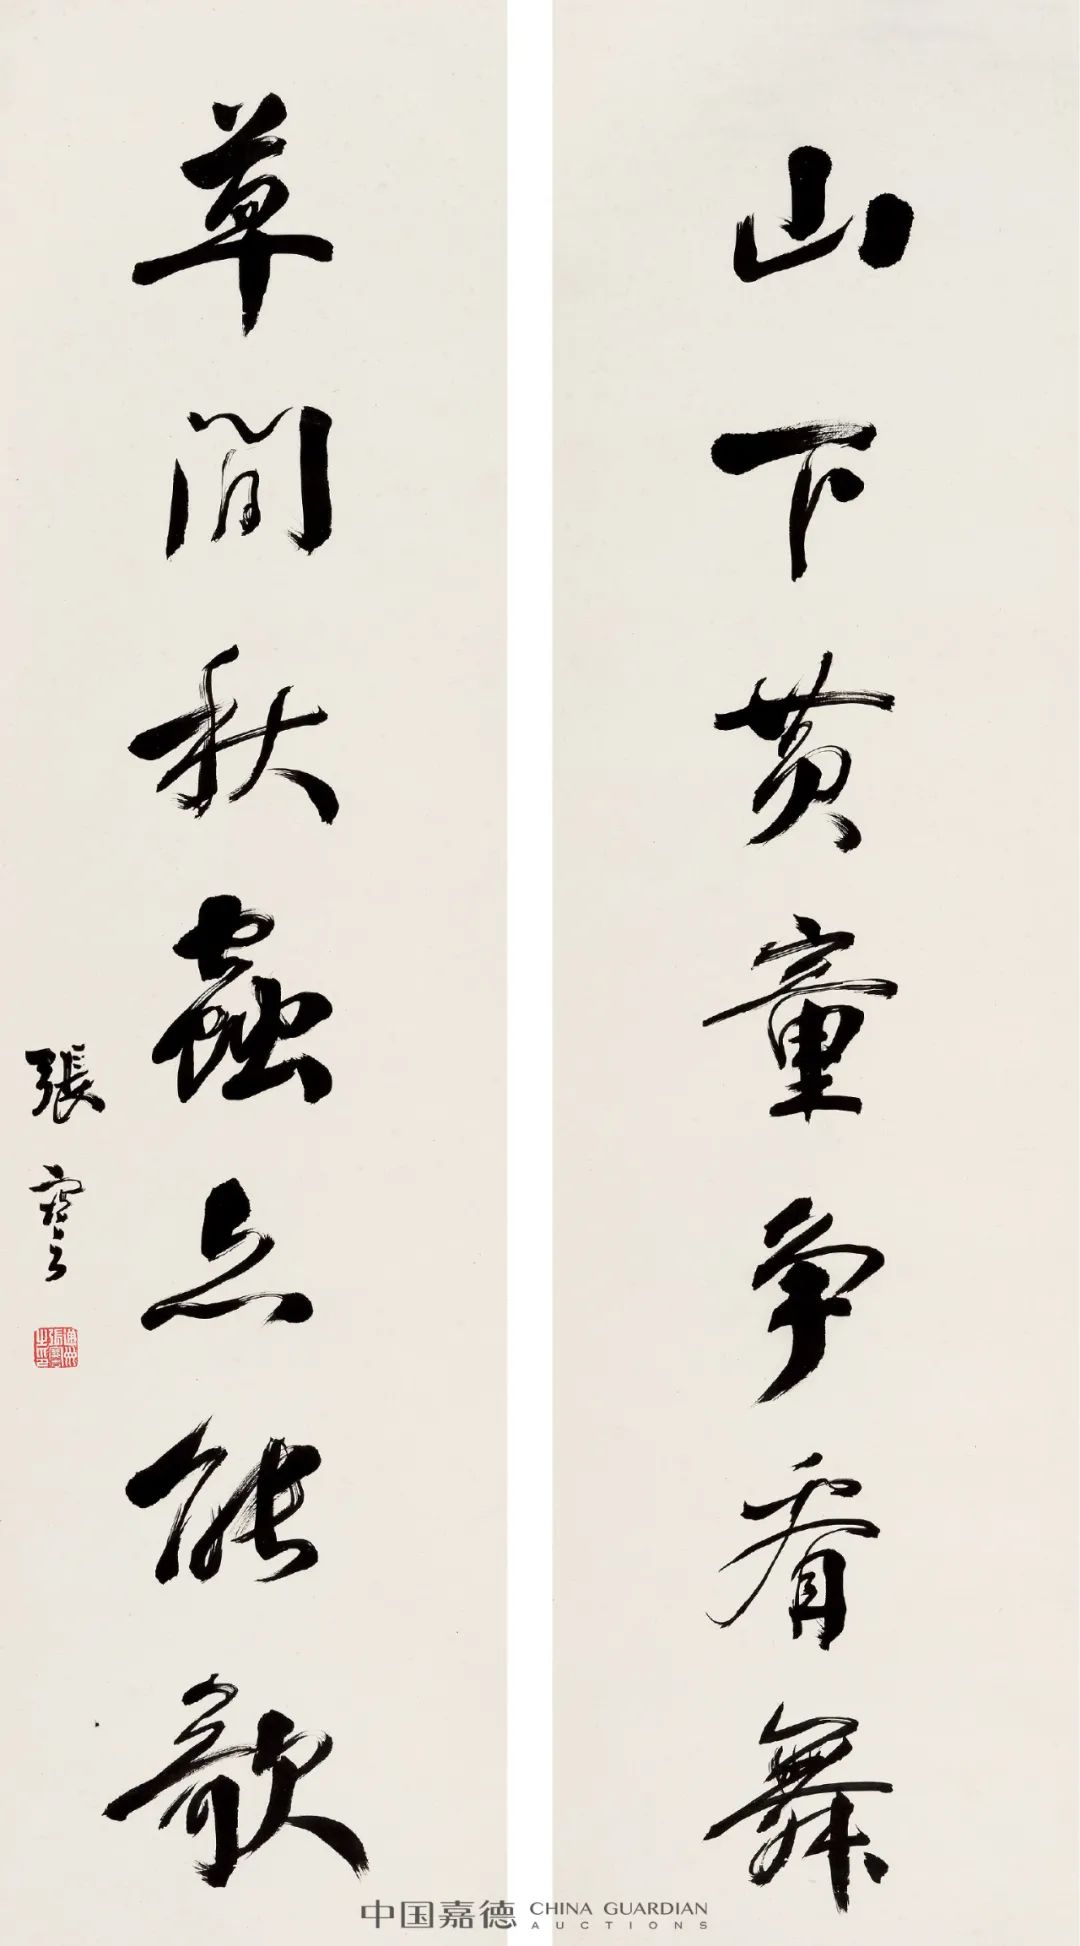 山下黄童争看舞
草間秋蟲亦能歌
張謇
通州張謇之印
中国嘉德 CHINA GUARDIAN AUCTIONS